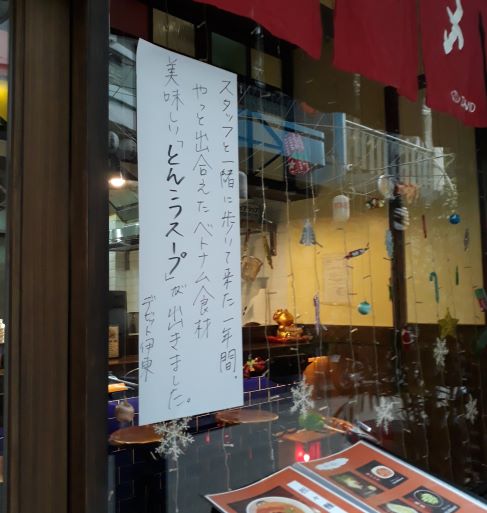 スタッフと一緒に歩いて来た一年間、
やっと出合えたベトナム食材
美味しい「とんこうスープ」が出きました。
デビット伊東